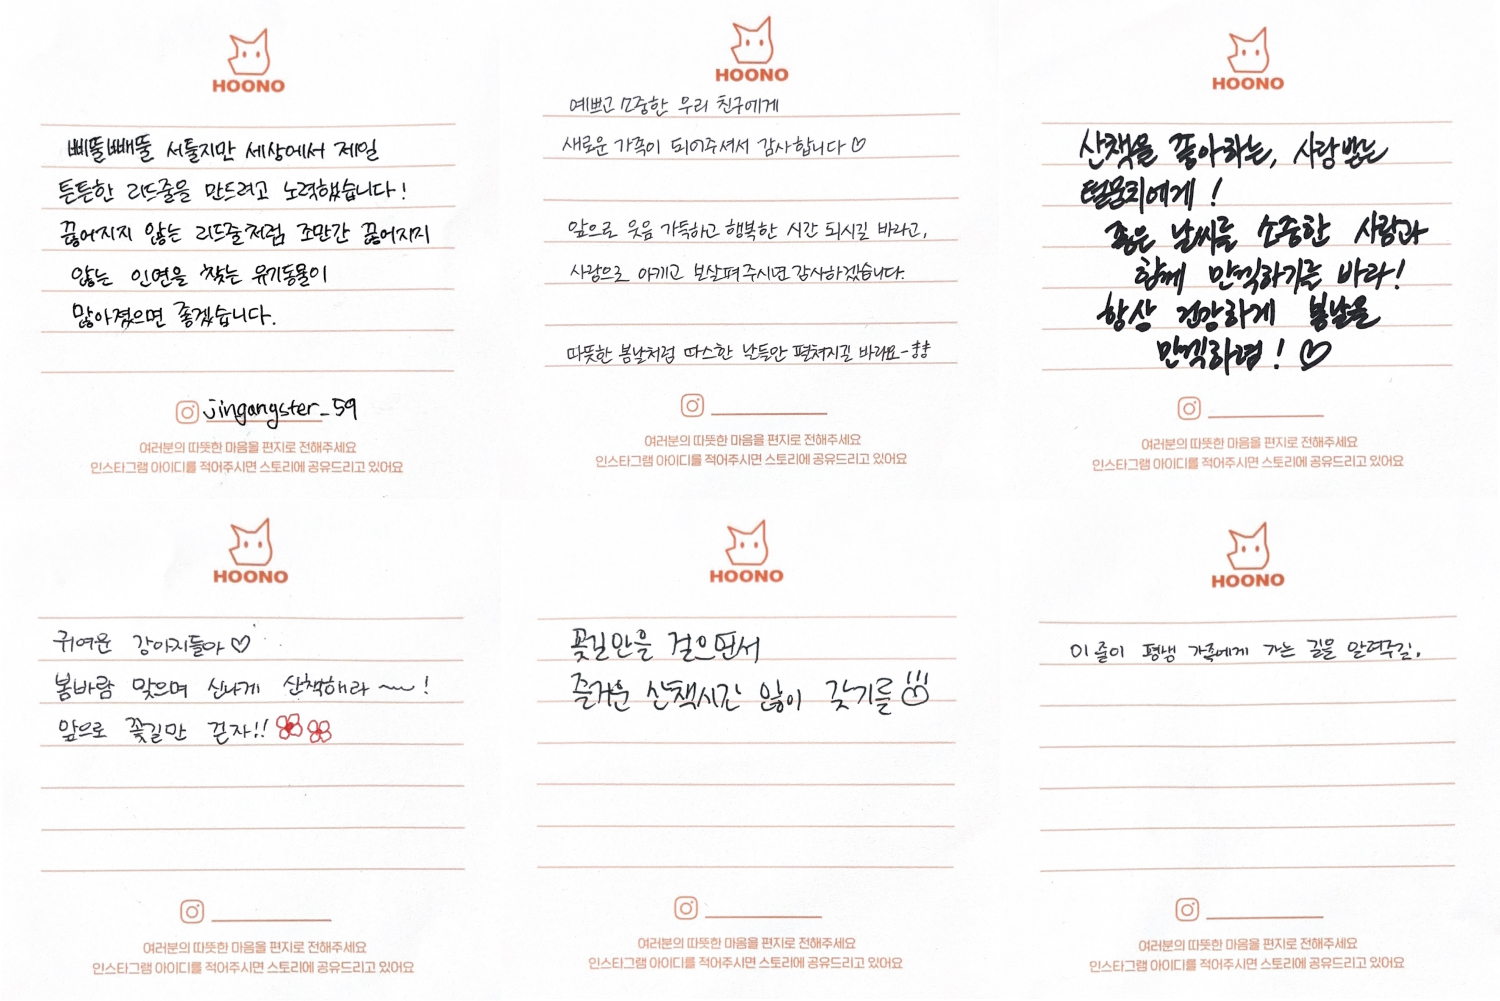 HOONO
삐뚤빼뚤 서툴지만 세상에서 제일
튼튼한 리드줄을 만드려고 노력했습니다!
끊어지지 않는 리드줄처럼 조만간 끊어지지
않는 인연을 찾는 유기동물이
많아졌으면 좋겠습니다.
jingangster_59
여러분의 따뜻한 마음을 편지로 전해주세요
인스타그램 아이디를 적어주시면 스토리에 공유드리고 있어요
HOONO
예쁘고 소중한 우리 친구에게
새로운 가족이 되어주셔서 감사합니다♡
앞으로 웃음 가득하고 행복한 시간 되시길 바라고,
사랑으로 아끼고 보살펴주시면 감사하겠습니다.
따뜻한 봄날처럼 따스한 날들만 펼쳐지길 바라요-
여러분의 따뜻한 마음을 편지로 전해주세요
인스타그램 아이디를 적어주시면 스토리에 공유드리고 있어요
HOONO
산책을 좋아하는, 사랑받는
털뭉치에게!
좋은 날씨를 소중한 사람과
함께 만끽하기를 바라!
항상 건강하게 봄날을
만끽하렴! ♡
여러분의 따뜻한 마음을 편지로 전해주세요
인스타그램 아이디를 적어주시면 스토리에 공유드리고 있어요
HOONO
귀여운 강아지들아♡
봄바람 맞으며 신나게 산책해라~~!
앞으로 꽃길만 걷자!!
여러분의 따뜻한 마음을 편지로 전해주세요
인스타그램 아이디를 적어주시면 스토리에 공유드리고 있어요
HOONO
꽃길만을 걸으면서
즐거운 산책시간 많이 갖기를
여러분의 따뜻한 마음을 편지로 전해주세요
인스타그램 아이디를 적어주시면 스토리에 공유드리고 있어요
HOONO
이 줄이 평생 가족에게 가는 길을 알려주길.
여러분의 따뜻한 마음을 편지로 전해주세요
인스타그램 아이디를 적어주시면 스토리에 공유드리고 있어요